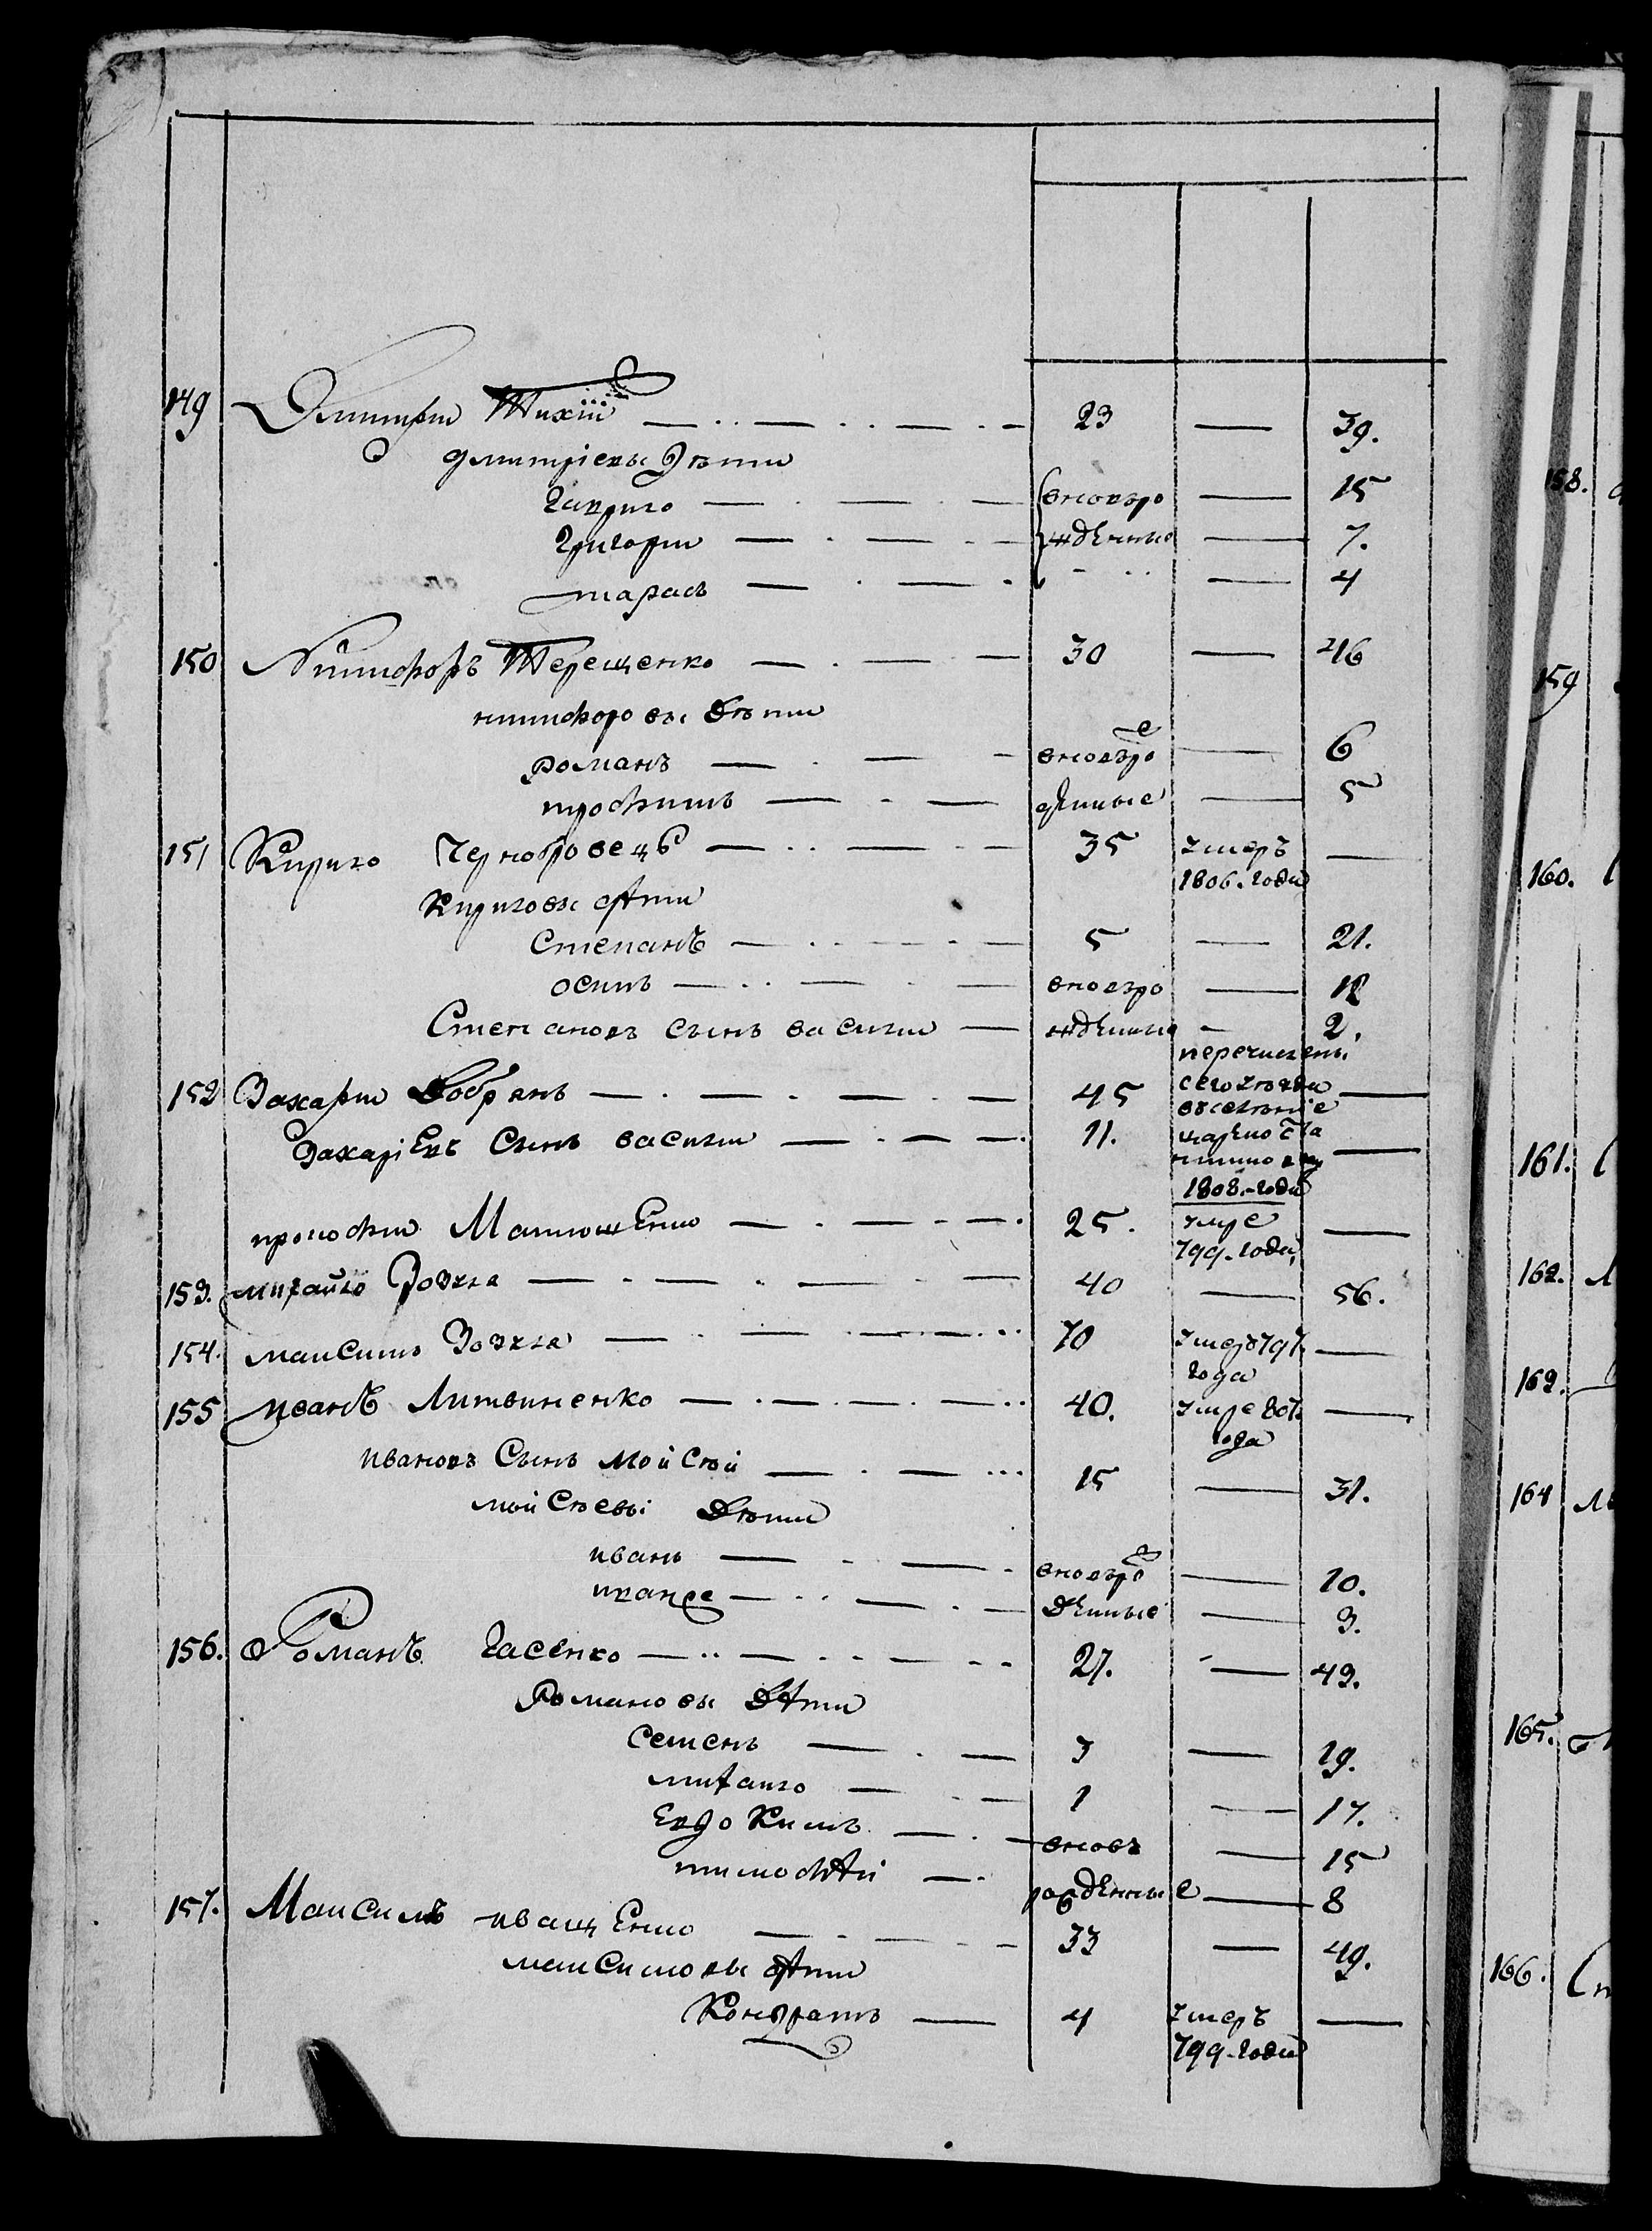 149 Дмитри Тихій 23 — 39.
дмитріевы дѣти
Гаврило вновъро — 15
Григори жденные — 7.
тарасъ — 4
150 Никифоръ Терещенко 30 — 46
никифоровы дѣти
романъ вновъро — 6
трофимъ денные — 5
151 Кирило Чернобровецъ 35 умеръ —
1806. года
Кириловы дѣти
Степанъ 5 — 21.
осипъ вновъро — 12
Степановъ сынъ васили жденные — 2.
152 Захари Бобрянъ 45 перечисленъ —
сего уезда
въселеніе
Захаріевъ Сынъ васили 11. —
1808. года
прокофи Матюшенко 25. умре —
799. года
153. михайло Зозуля 40 — 56.
154. максимъ Зозуля 70 умеръ 797. —
года
155 иванъ Литвиненко 40. умре 807. —
года
ивановъ Сынъ мойсѣй 15 — 31.
мойсѣевы дѣти
иванъ вновъро — 10.
иванъ же денные — 3.
156. Романъ Гасенко 27. — 43.
Романовы дѣти
семенъ 3 — 19.
михаило 1 — 17.
Евдокимъ вновъ — 15
тимофѣй рожденные — 8
157. Максимъ иващенко 33 — 49.
максимовы дѣти
Кондратъ 4 умеръ —
799. года
158.
159
160.
161.
162.
162.
164
165.
166.